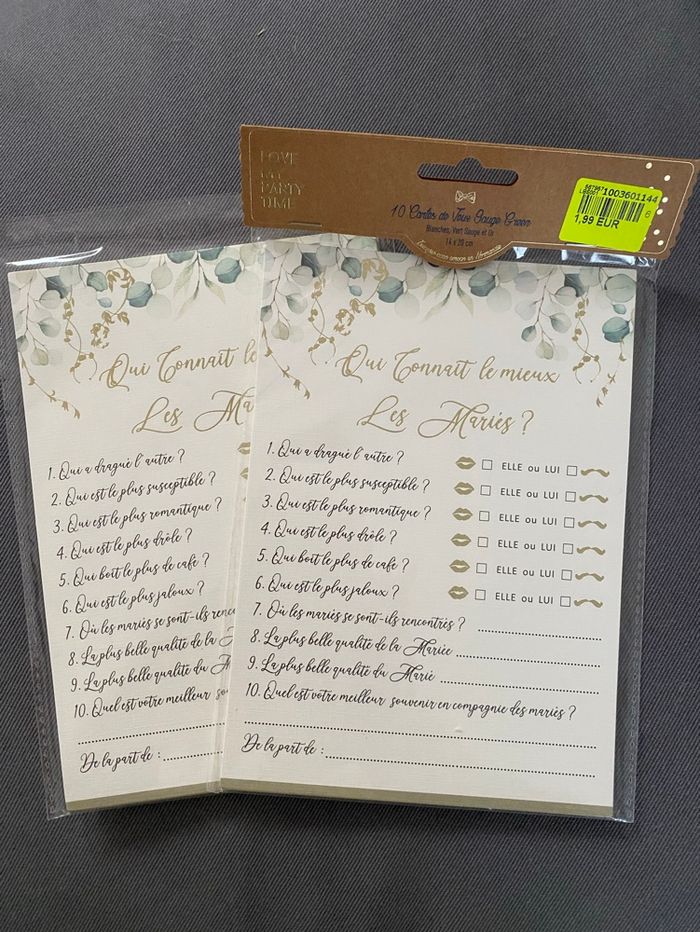 LOVE
MY
PARTY
TIME
10 Cartes de Jeux Sauge Green
Blanches, Vert Sauge et Or
14 x 20 cm
1003601144
6
1,99 EUR
Qui Connaît le
Les Ma
1. Qui a dragué l'autre ?
2. Qui est le plus susceptible ?
3. Qui est le plus romantique ?
4. Qui est le plus drôle ?
5. Qui boit le plus de café ?
6. Qui est le plus jaloux ?
7. Où les mariés se sont-ils renco
8. La plus belle qualité de la M
9. La plus belle qualité du M
10. Quel est votre meilleur sou
De la part de :
Qui Connaît le mieux
Les Mariés ?
1. Qui a dragué l'autre ? ELLE ou LUI
2. Qui est le plus susceptible ? ELLE ou LUI
3. Qui est le plus romantique ? ELLE ou LUI
4. Qui est le plus drôle ? ELLE ou LUI
5. Qui boit le plus de café ? ELLE ou LUI
6. Qui est le plus jaloux ? ELLE ou LUI
7. Où les mariés se sont-ils rencontrés ?
8. La plus belle qualité de la Mariée
9. La plus belle qualité du Marié
10. Quel est votre meilleur souvenir en compagnie des mariés ?
De la part de :